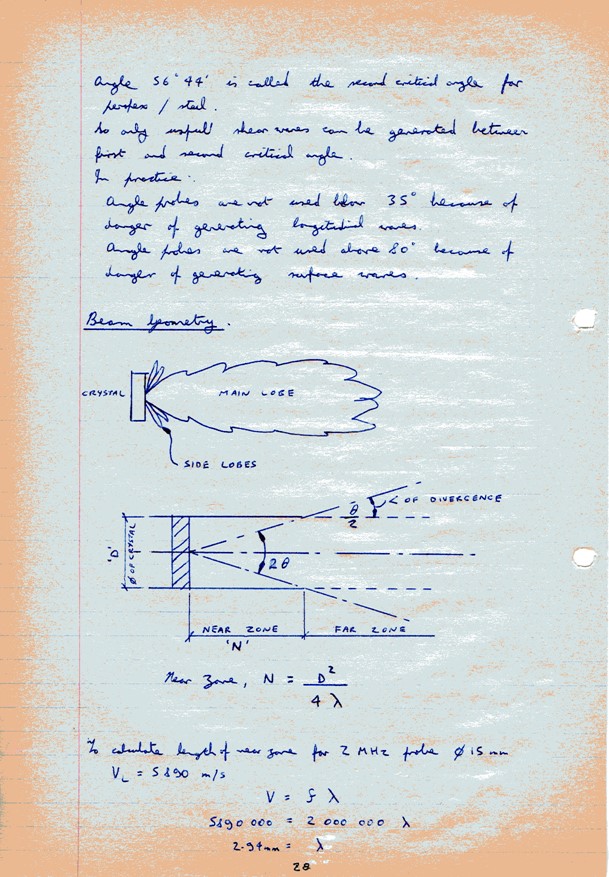 Angle 56° 44' is called the second critical angle for
perspex / steel.
So only useful shear waves can be generated between
first and second critical angle.
In practice:
Angle probes are not used below 35° because of
danger of generating longitudial waves.
Angle probes are not used above 80° because of
danger of generating surface waves.
Beam Geometry.
CRYSTAL
MAIN LOBE
SIDE LOBES
θ/2
∠ OF DIVERGENCE
'D'
Ø OF CRYSTAL
2θ
NEAR ZONE
FAR ZONE
'N'
Near Zone, N = D²/4λ
To calculate length of near zone for 2 MHz probe Ø 15 mm
V_L = 5890 m/s
V = f λ
5890 000 = 2 000 000 λ
2.94mm = λ
28